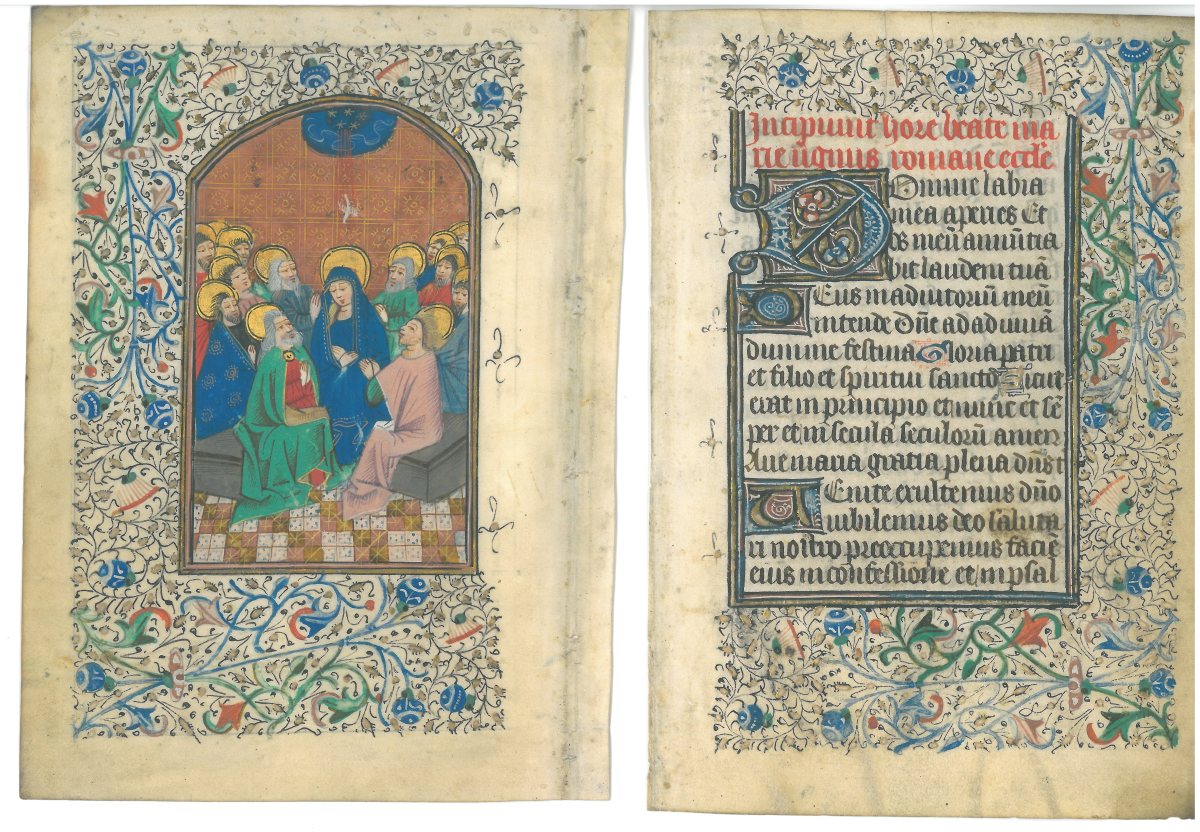 Incipiunt hore beate ma
rie uginis romane eccle
Domine labia
mea aperies Et
os meū annuntia
bit laudem tuā
Deus in adiutoriū meū
intende Dn̄e ad adiuuā
dum me festina Gloria patri
et filio et spiritui sancto Sicut
erat in principio et nunc et sē
per et in secula seculorū amen
Aue maria gratia plena dn̄s t
Uenite exultemus dn̄o
iubilemus deo saluta
ri nostro preoccupemus faciē
eius in confessione et in psal